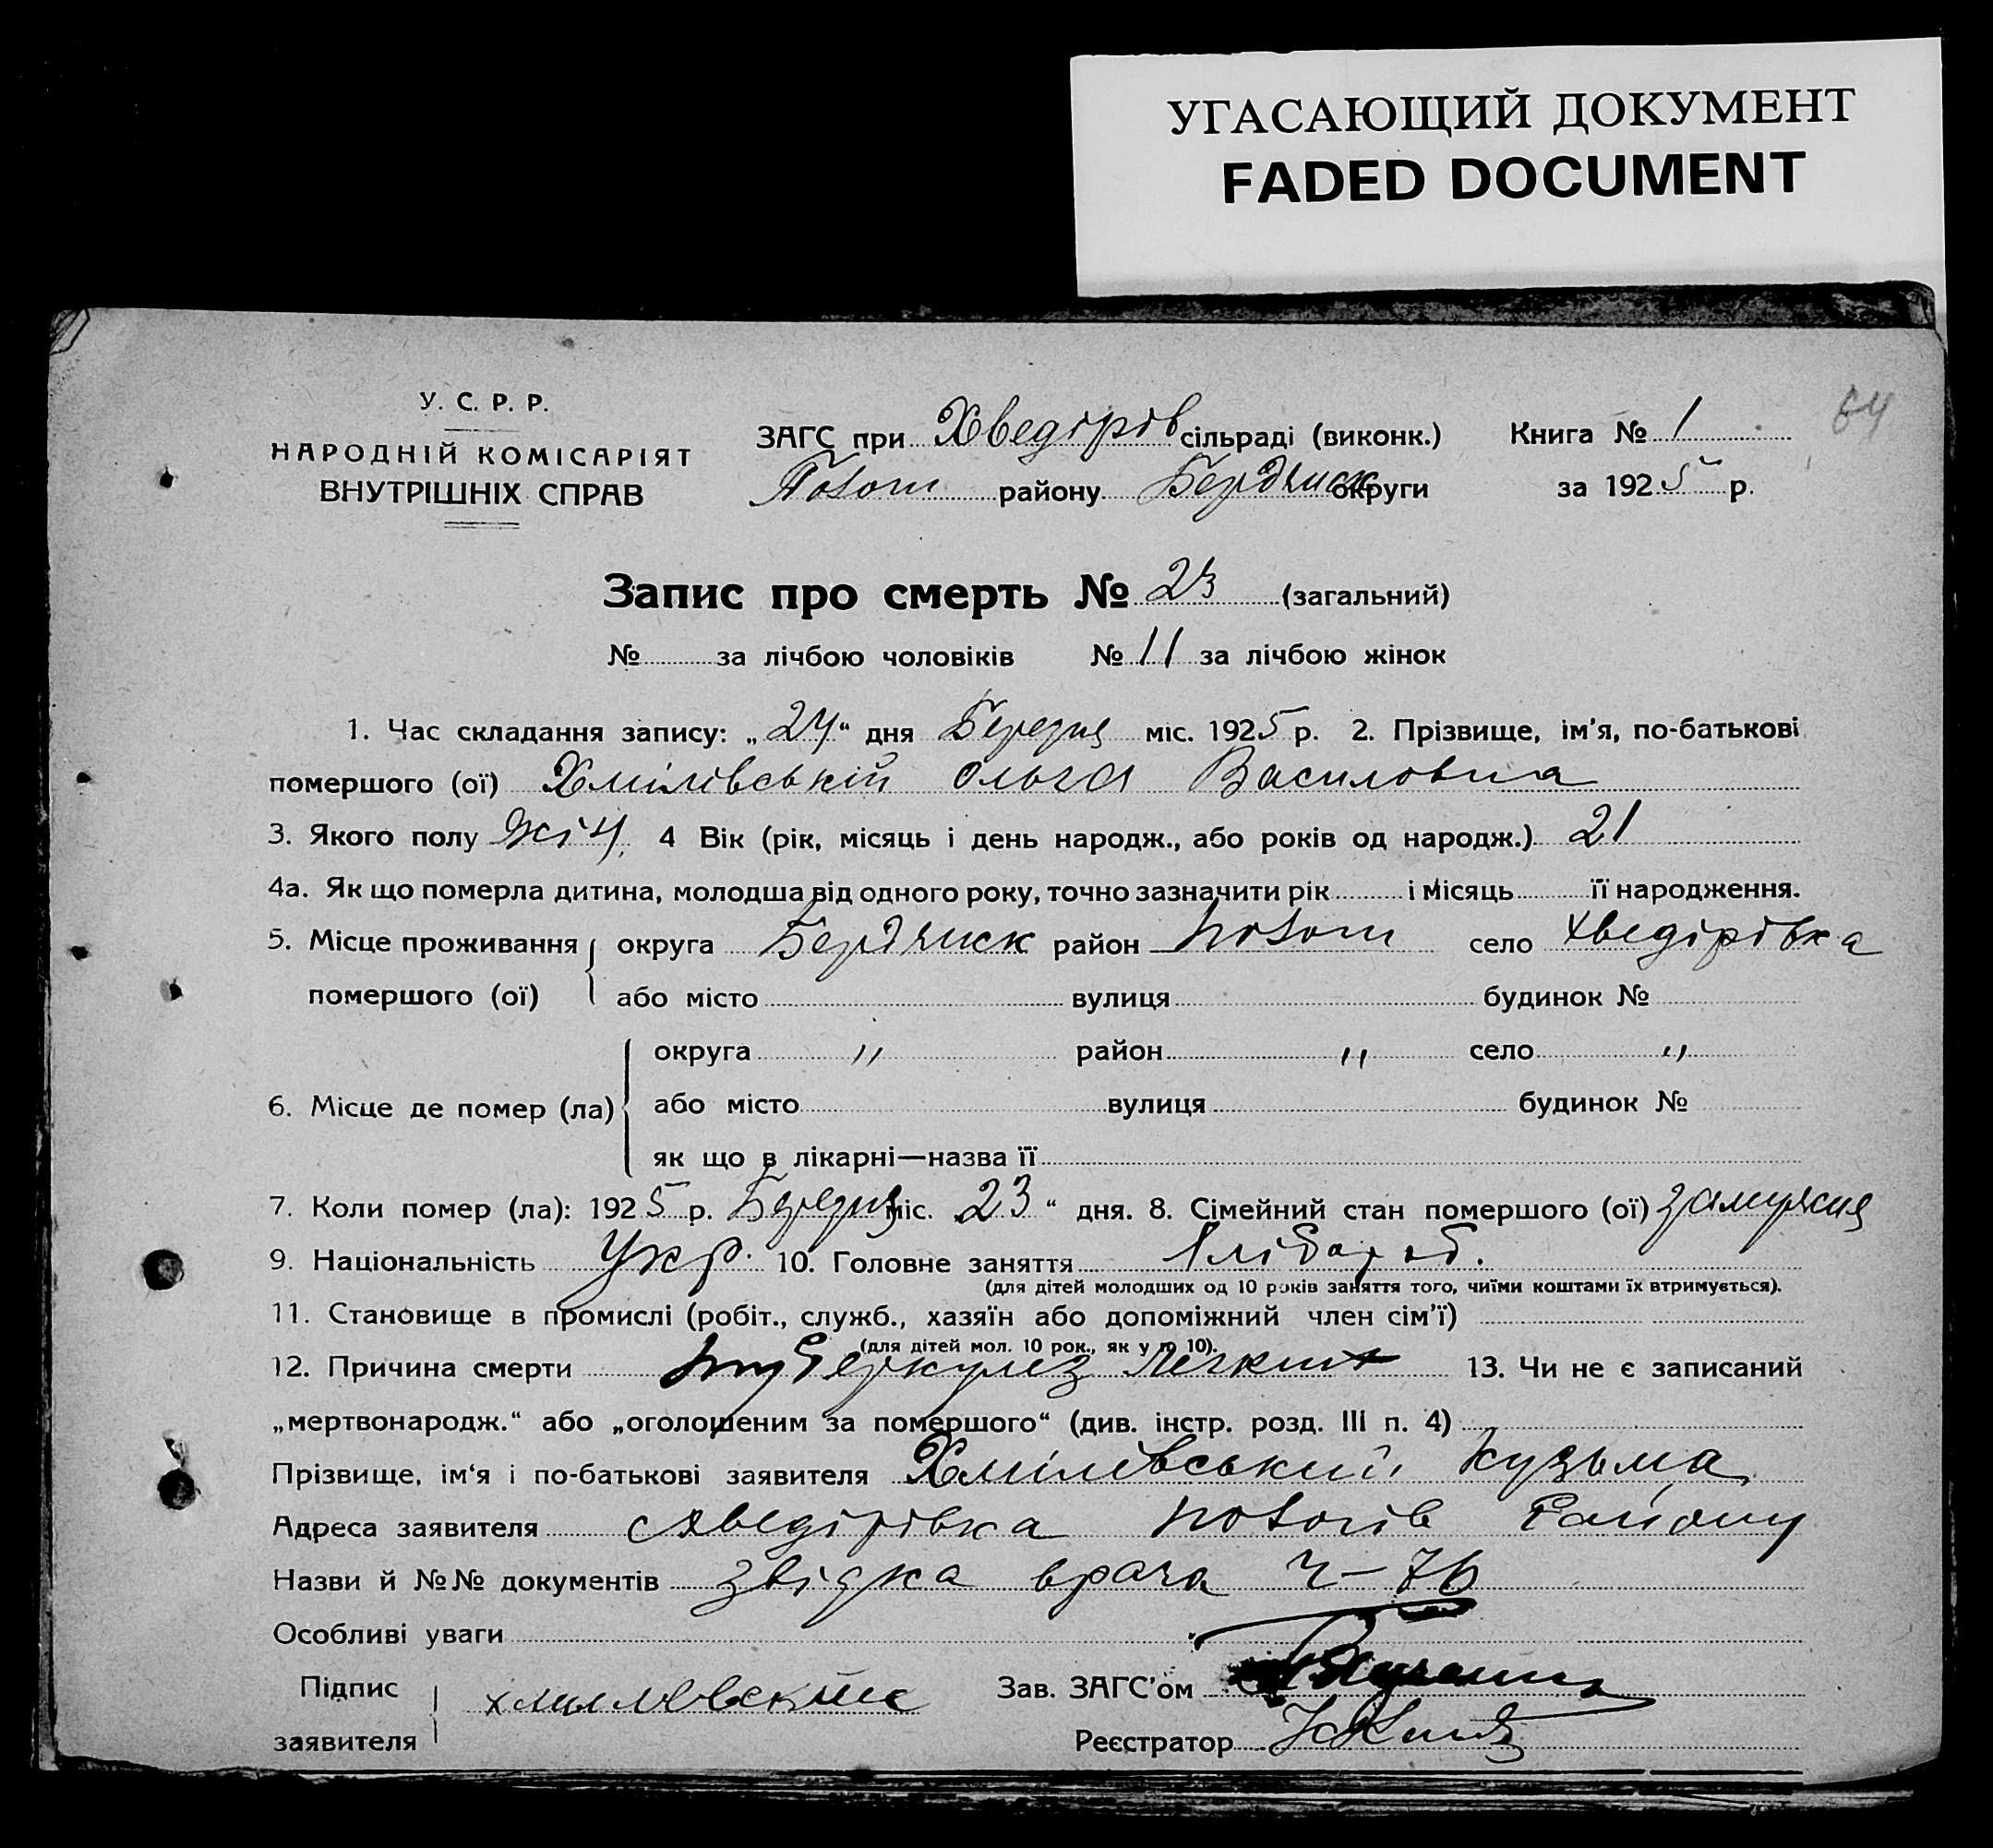 УГАСАЮЩИЙ ДОКУМЕНТ
FADED DOCUMENT
64
У. С. Р. Р.
НАРОДНІЙ КОМІСАРІЯТ
ВНУТРІШНІХ СПРАВ
ЗАГС при Хведірів сільраді (виконк.) Книга № 1
району Бердянск округи за 1925 р.
Запис про смерть № 23 (загальний)
№ за лічбою чоловіків № 11 за лічбою жінок
1. Час складання запису: „24“ дня Березня міс. 1925 р. 2. Прізвище, ім'я, по-батькові
помершого (ої) Хмілівській Ольга Василовна
3. Якого полу жін. 4 Вік (рік, місяць і день народж., або років од народж.) 21
4а. Як що померла дитина, молодша від одного року, точно зазначити рік і місяць її народження.
5. Місце проживання округа Бердянск район село Хведірівка
помершого (ої) або місто вулиця будинок №
округа " район " село "
6. Місце де помер (ла) або місто вулиця будинок №
як що в лікарні—назва її
7. Коли помер (ла): 1925 р. Березня міс. 23 “ дня. 8. Сімейний стан помершого (ої) замужня
9. Національність Укр. 10. Головне заняття хлібороб.
(для дітей молодших од 10 років заняття того, чиїми коштами їх втримується).
11. Становище в промислі (робіт., служб., хазяїн або допоміжний член сім'ї)
(для дітей мол. 10 рок., як у п 10).
12. Причина смерти туберкулез легких 13. Чи не є записаний
„мертвонародж.“ або „оголошеним за помершого“ (див. інстр. розд. III п. 4)
Прізвище, ім‘я і по-батькові заявителя Хмілівський Кузьма
Адреса заявителя с Хведірівка Району
Назви й №№ документів звідка врача ч – 76
Особливі уваги
Підпис
заявителя
Зав. ЗАГС'ом
Реєстратор